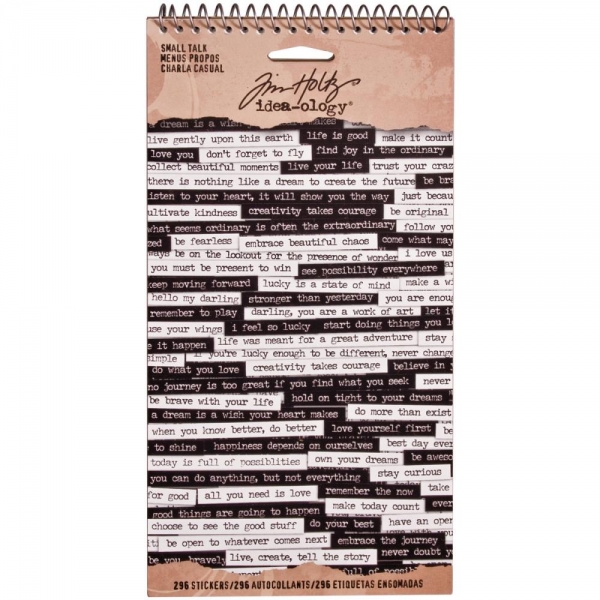 SMALL TALK
MENUS PROPOS
CHARLA CASUAL
Tim Holtz
idea-ology®
a dream is a wish makes
live gently upon this earth life is good make it count
love you don't forget to fly find joy in the ordinary
collect beautiful moments live your life trust your craz
there is nothing like a dream to create the future be bra
listen to your heart, it will show you the way just becau
ultivate kindness creativity takes courage be original
what seems ordinary is often the extraordinary follow you
zed be fearless embrace beautiful chaos come what may
ways be on the lookout for the presence of wonder i love us
you must be present to win see possibility everywhere
keep moving forward lucky is a state of mind make a wi
hello my darling stronger than yesterday you are enoug
remember to play darling, you are a work of art let it
use your wings i feel so lucky start doing things you l
e it happen life was meant for a great adventure stay
simple if you're lucky enough to be different, never change
do what you love creativity takes courage believe in
no journey is too great if you find what you seek never
be brave with your life hold on tight to your dreams
a dream is a wish your heart makes do more than exist
when you know better, do better love yourself first
to shine happiness depends on ourselves best day ever
today is full of possiblities own your dreams be aweso
you can do anything, but not everything stay curious
for good all you need is love remember the now take
good things are going to happen make today count ever
choose to see the good stuff do your best have an open
be open to whatever comes next embrace the journey
you, be bravely live, create, tell the story never doubt
full of possib
296 STICKERS/296 AUTOCOLLANTS/296 ETIQUETAS ENGOMADAS